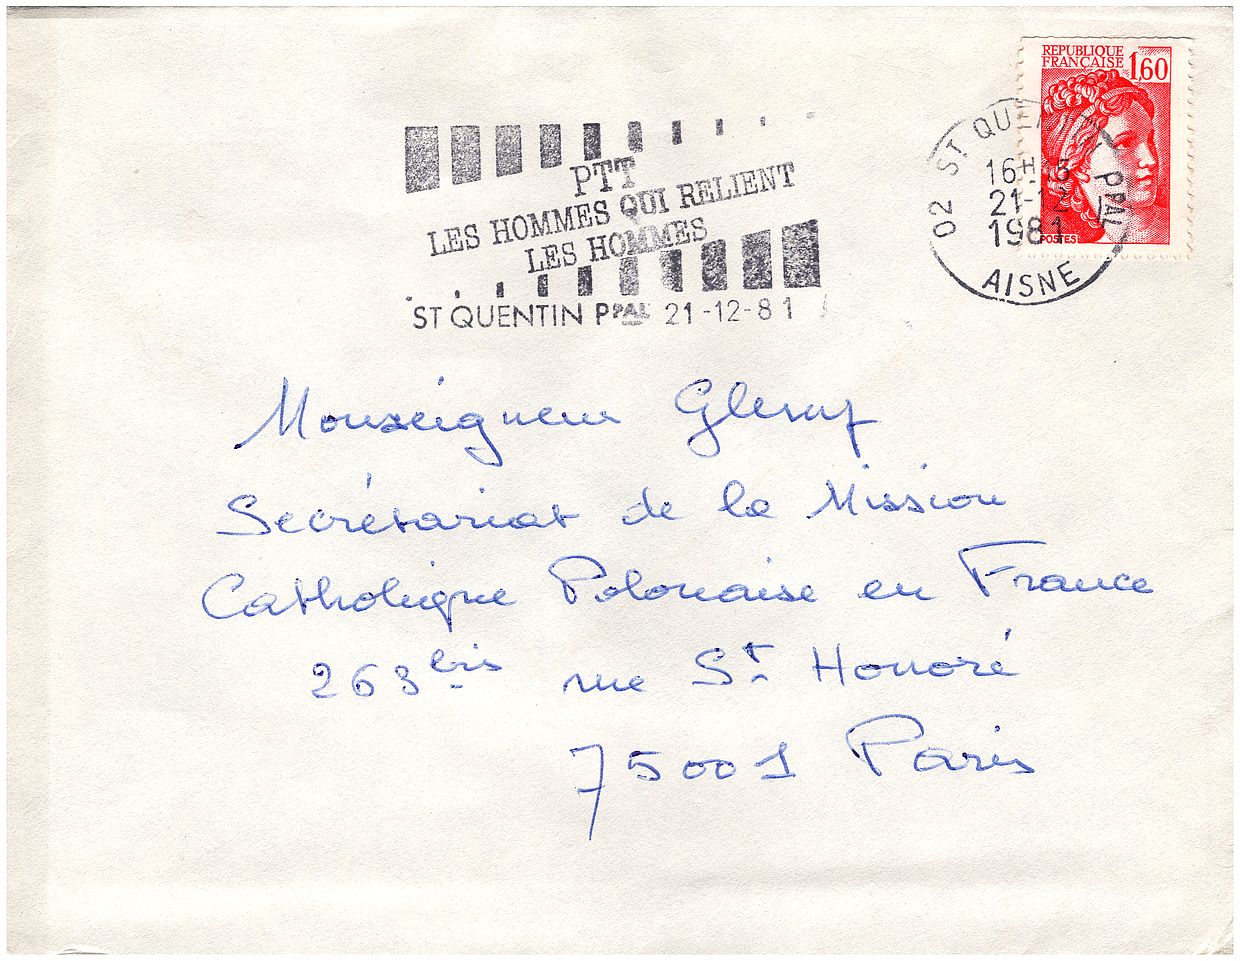 REPUBLIQUE
FRANÇAISE 1,60
POSTES
02 ST QUENTIN PPAL
16H 13
21-12
1981
AISNE
PTT
LES HOMMES QUI RELIENT
LES HOMMES
ST QUENTIN PPAL 21-12-81
Monseigneur
Secrétariat de la Mission
Catholique Polonaise en France
263 bis rue St Honoré
75001 Paris